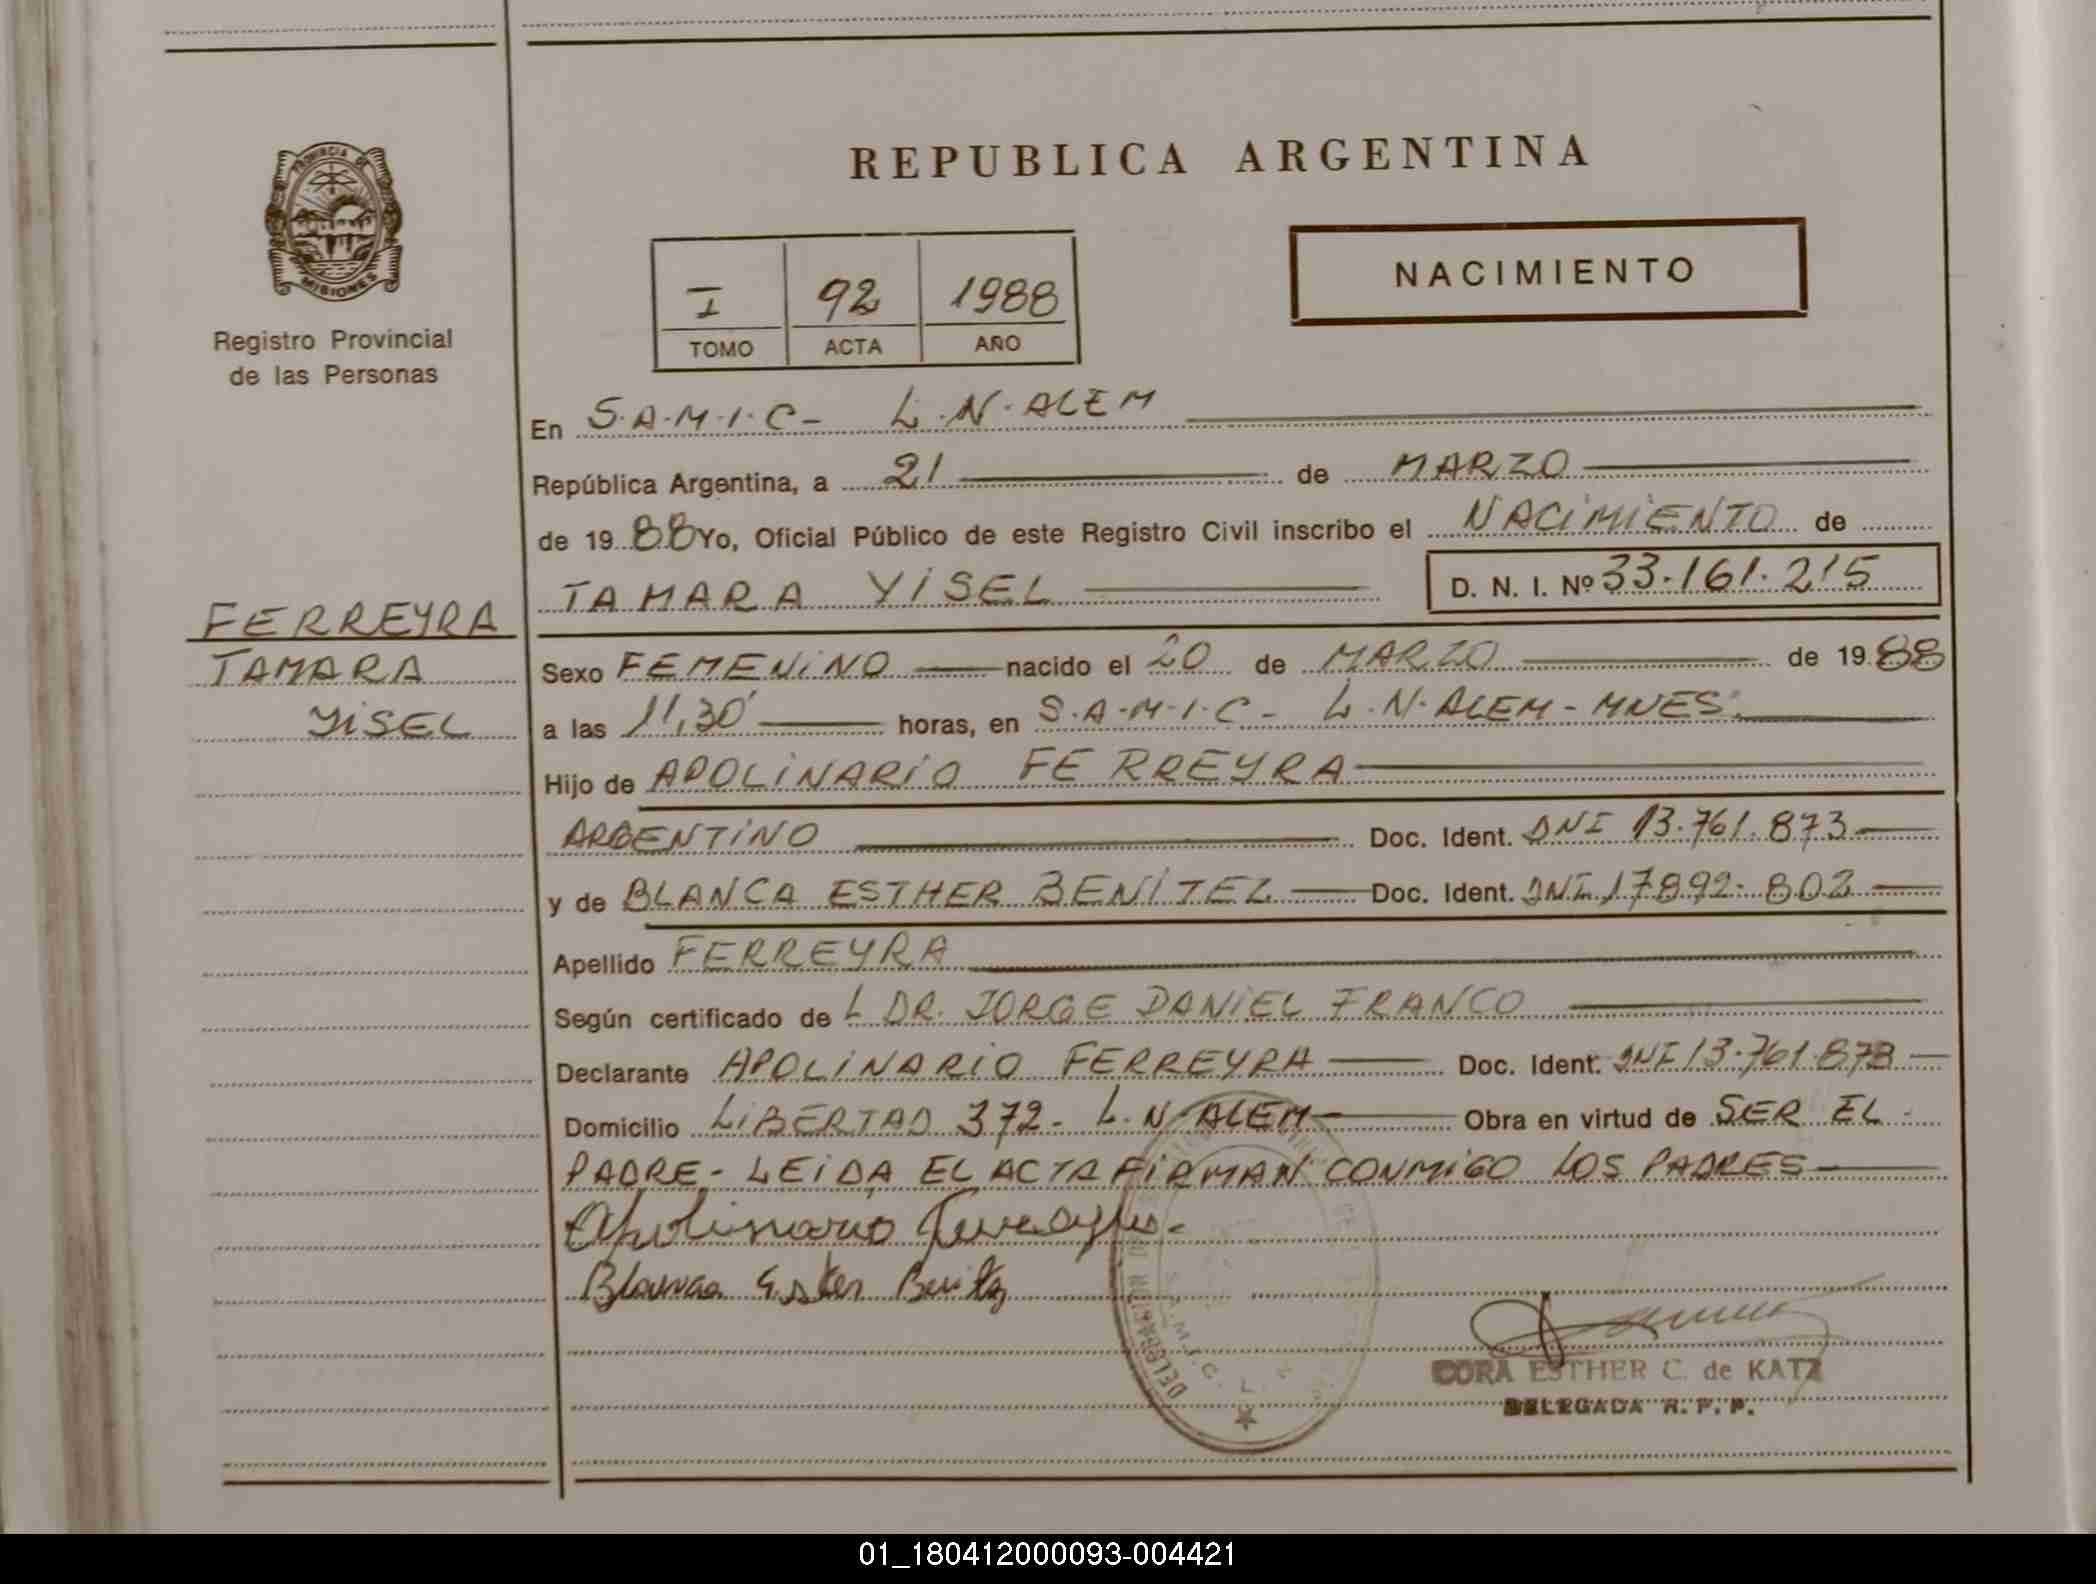 REPUBLICA ARGENTINA
PROVINCIA DE
MISIONES
Registro Provincial
de las Personas
NACIMIENTO
I 92 1988
TOMO ACTA AÑO
En S.A.M.I.C- L.N.ALEM
República Argentina, a 21 de MARZO
de 1988 Yo, Oficial Público de este Registro Civil inscribo el NACIMIENTO de
TAMARA YISEL D. N. I. Nº 33.161.215
FERREYRA
TAMARA
YISEL
Sexo FEMENINO nacido el 20 de MARZO de 1988
a las 11,30' horas, en S.A.M.I.C- L.N.ALEM-MNES.
Hijo de APOLINARIO FERREYRA
ARGENTINO Doc. Ident. DNI 13.761.873
y de BLANCA ESTHER BENITEZ Doc. Ident. DNI 17892.802
Apellido FERREYRA
Según certificado de L DR. JORGE DANIEL FRANCO
Declarante APOLINARIO FERREYRA Doc. Ident. DNI 13.761.873
Domicilio LIBERTAD 372- L.N ALEM Obra en virtud de SER EL
PADRE- LEIDA EL ACTA FIRMAN CONMIGO LOS PADRES
Apolinario Ferreyra
Blanca Ester Benitez
DELEGACION
S.A.M.I.C. L.
CORA ESTHER C. de KATZ
DELEGADA R. P. P.
01_180412000093-004421